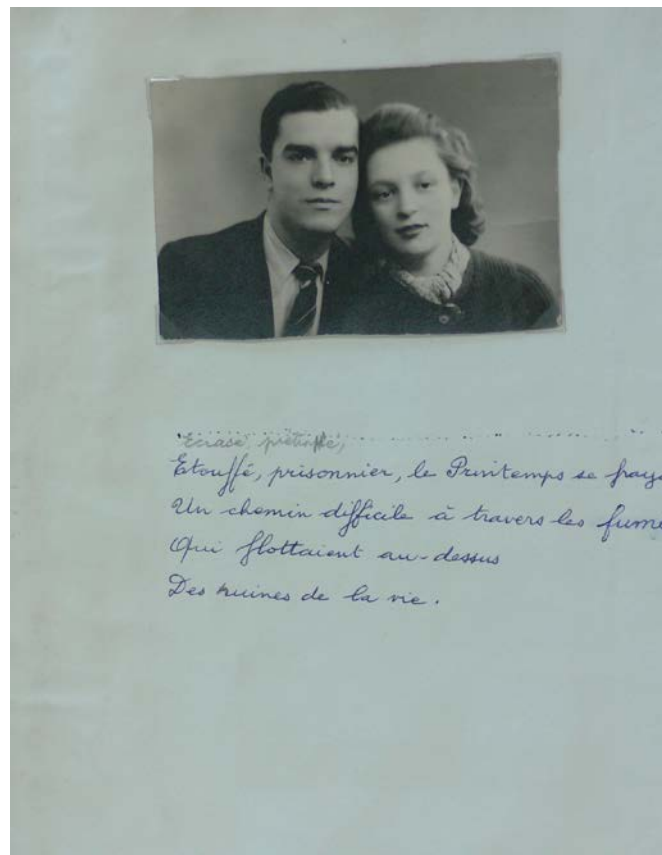 Ecrasé, piétiné,
Etouffé, prisonnier, le Printemps se fraya
Un chemin difficile à travers les fumé
Qui flottaient au-dessus
Des ruines de la vie.